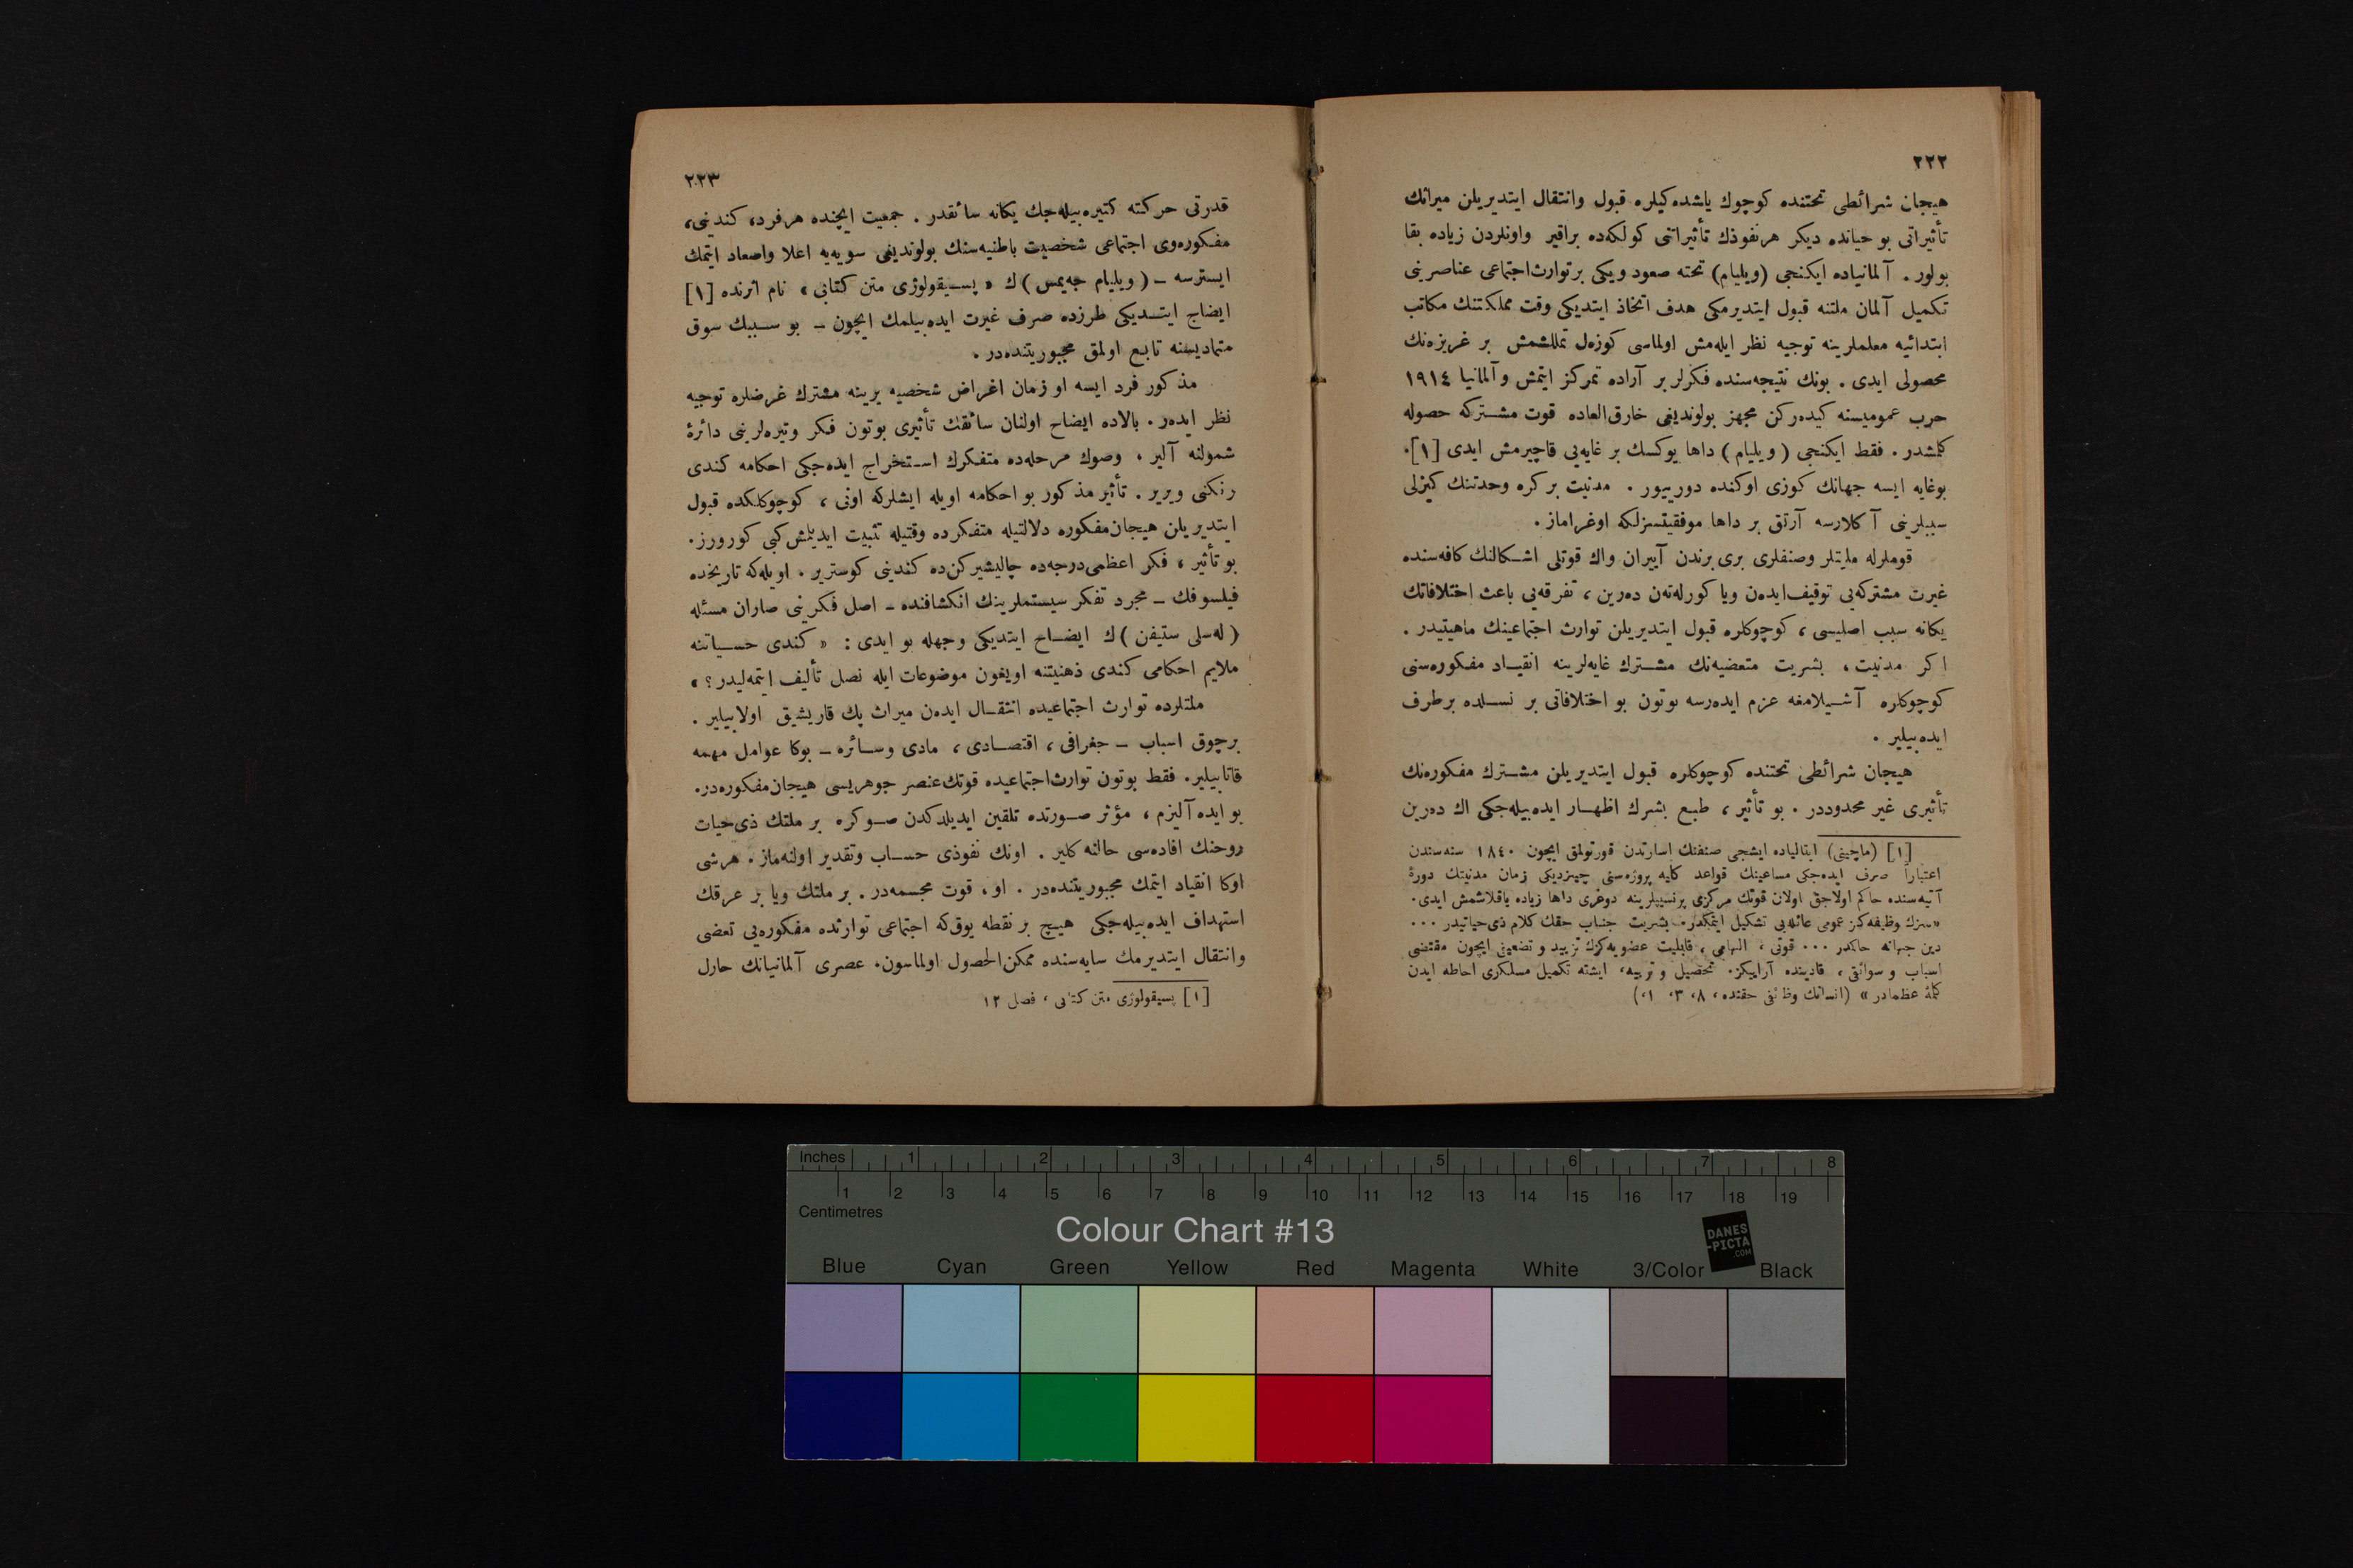 ٢٢٢
هیجان شرائطی تحتنده كوچوك یاشده‌كیلره قبول وانتقال ایتدیریلن میراثك
تأثیراتی بو حیاتده دیكر هرنفوذك تأثیراتنی كولكه‌ده براقیر واونلردن زیاده بقا
بولور . آلمانیاده ایكنجی (ویلیام) تخته صعود ویكی برتوارث‌اجتماعی عناصرینی
تكمیل آلمان ملتنه قبول ایتدیرمكی هدف اتخاذ ایتدیكی وقت مملكتنك مكاتب
ابتدائیه معلملرینه توجیه نظر ایله‌مش اولماسی كوزه‌ل تمللشمش بر غریزه‌نك
محصولی ایدی . بونك نتیجه‌سنده فكرلر بر آراده تمركز ایتمش و آلمانیا ١٩١٤
حرب عمومیسنه كیده‌ركن مجهز بولوندیغی خارق‌العاده قوت مشتركه حصوله
كلمشدر . فقط ایكنجی (ویلیام) داها یوكسك بر غایه‌یی قاچیرمش ایدی [١].
بوغایه ایسه جهانك كوزی اوكنده دورییور . مدنیت بر كره وحدتنك كیزلی
سببلرینی آكلارسه آرتق بر داها موفقیتسزلكه اوغراماز .
قوملرله ملیتلر وصنفلری بری برندن آییران واك قوتلی اشكالنك كافه‌سنده
غیرت مشتركه‌یی توقیف‌ایده‌ن ویا كورله‌ته‌ن ده‌رین ، تفرقه‌یی باعث اختلافاتك
یكانه سبب اصلیسی ، كوچوكلره قبول ایتدیریلن توارث اجتماعینك ماهیتیدر .
اكر مدنیت ، بشریت متعضیه‌نك مشترك غایه‌لرینه انقیاد مفكوره‌سنی
كوچوكلره آشیلامغه عزم ایده‌رسه بوتون بو اختلافاتی بر نسلده برطرف
ایده‌بیلیر .
هیجان شرائطی تحتنده كوچوكلره قبول ایتدیریلن مشترك مفكوره‌نك
تأثیری غیر محدوددر . بو تأثیر ، طبع بشرك اظهار ایده‌بیله‌جكی اك ده‌رین
[١] (ماچینی) ایتالیاده ایشجی صنفنك اسارتدن قورتولمق ایچون ١٨٤٠ سنه‌سندن
اعتباراً صرف ایده‌جكی مساعینك قواعد كلیه پروژه‌سنی چیزدیكی زمان مدنیتك دورۀ
آتیه‌سنده حاكم اولاجق اولان قوتك مركزی پرنسیپلرینه دوغری داها زیاده یاقلاشمش ایدی.
«سزك وظیفه‌كز عمومی عائله‌یی تشكیل ایتمكدر. بشریت جناب حقك كلام ذی‌حیاتیدر ...
دین جهانه حاكمدر ... قوتی ، الهامی ، قابلیت عضویه‌كزك تزیید و تضعیفی ایچون مقتضی
اسباب و سوائقی ، قادینده آراییكز. تحصیل و تربیه، ایشته تكمیل مسلكری احاطه ایدن
كلمۀ عظمادر» (انسانك وظائفی حقنده ، ٨، ٣، ١،)
٢٢٣
قدرتی حركته كتیره‌بیله‌جك یكانه سائقدر . جمعیت ایچنده هرفرد، كندینی،
مفكوره‌وی اجتماعی شخصیت باطنیه‌سنك بولوندیغی سویه‌یه اعلا واصعاد ایتمك
ایسترسه ـ (ویلیام جه‌یمس) ك «پسیقولوژی متن كتابی» نام اثرنده [١]
ایضاح ایتدیكی طرزده صرف غیرت ایده‌بیلمك ایچون ـ بو سببك سوق
متمادیسنه تابع اولمق مجبوریتنده‌در .
مذكور فرد ایسه او زمان اغراض شخصیه یرینه مشترك غرضلره توجیه
نظر ایده‌ر . بالاده ایضاح اولنان سائقك تأثیری بوتون فكر وتیره‌لرینی دائرۀ
شمولنه آلیر ، وصوك مرحله‌ده متفكرك استخراج ایده‌جكی احكامه كندی
رنكنی ویریر . تأثیر مذكور بو احكامه اویله ایشلركه اونی ، كوچوكلكده قبول
ایتدیریلن هیجان‌مفكوره دلالتیله متفكرده وقتیله تثبیت ایدیلمش كبی كورورز.
بو تأثیر ، فكر اعظمی‌درجه‌ده چالیشیركن‌ده كندینی كوستریر . اویله‌كه تاریخده
فیلسوفك ـ مجرد تفكر سیستملرینك انكشافنده ـ اصل فكرینی صاران مسئله
(له‌سلی ستیفن) ك ایضاح ایتدیكی وجهله بو ایدی : « كندی حسیاتنه
ملایم احكامی كندی ذهنیتنه اویغون موضوعات ایله نصل تألیف ایتمه‌لیدر ؟ »
ملتلرده توارث اجتماعیده انتقال ایده‌ن میراث پك قاریشیق اولابیلیر .
برچوق اسباب ـ جغرافی ، اقتصادی ، مادی وسائره ـ بوكا عوامل مهمه
قاتابیلیر. فقط بوتون توارث‌اجتماعیده قوتك‌عنصر جوهریسی هیجان‌مفكوره‌در.
بو ایده‌آلیزم ، مؤثر صورتده تلقین ایدیلدكدن صوكره بر ملتك ذی‌حیات
روحنك افاده‌سی حالنه كلیر . اونك نفوذی حساب وتقدیر اولنه‌ماز . هرشی
اوكا انقیاد ایتمك مجبوریتنده‌در . او، قوت مجسمه‌در . بر ملتك ویا بر عرقك
استهداف ایده‌بیله‌جكی هیچ بر نقطه یوق‌كه اجتماعی توارثده مفكوره‌یی تعضی
وانتقال ایتدیرمك سایه‌سنده ممكن‌الحصول اولماسون. عصری آلمانیانك حارل
[١] پسیقولوژی متن كتابی ، فصل ١٢
Inches 1 2 3 4 5 6 7 8
1 2 3 4 5 6 7 8 9 10 11 12 13 14 15 16 17 18 19
Centimetres
Colour Chart #13
DANES
-PICTA
.COM
Blue Cyan Green Yellow Red Magenta White 3/Color Black